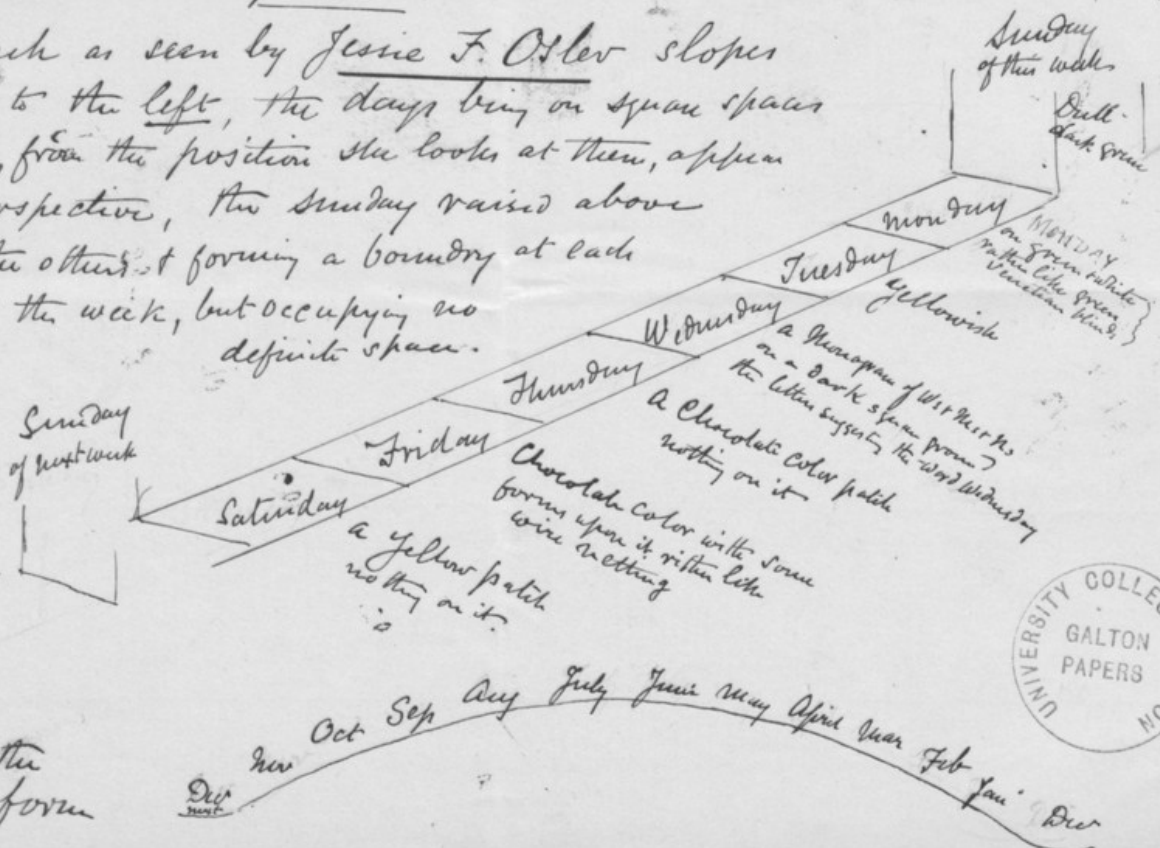 as seen by Jessie F. Osler slopes
to the left, the days being on square spaces
from the position she looks at them, appear
the Sunday raised above
others & forming a boundry at each
the week, but occupying no
definite space.
Sunday
of this week
Dull-
dark green
Monday
MONDAY
on green & white
rather like green
Venetian blinds
Tuesday
Yellowish
Wednesday
a Monogram of
on a dark square ground
the letters suggesting the word Wednesday
Thursday
A Chocolate color patch
nothing on it
Friday
Chocolate color with some
forms upon it rather like
wire netting
Saturday
a yellow patch
nothing on it.
Sunday
of next week
Dec
next
Nov
Oct
Sep
Aug
July
June
May
April
Mar
Feb
Jan
Dec
the
form
UNIVERSITY COLLEGE
GALTON
PAPERS